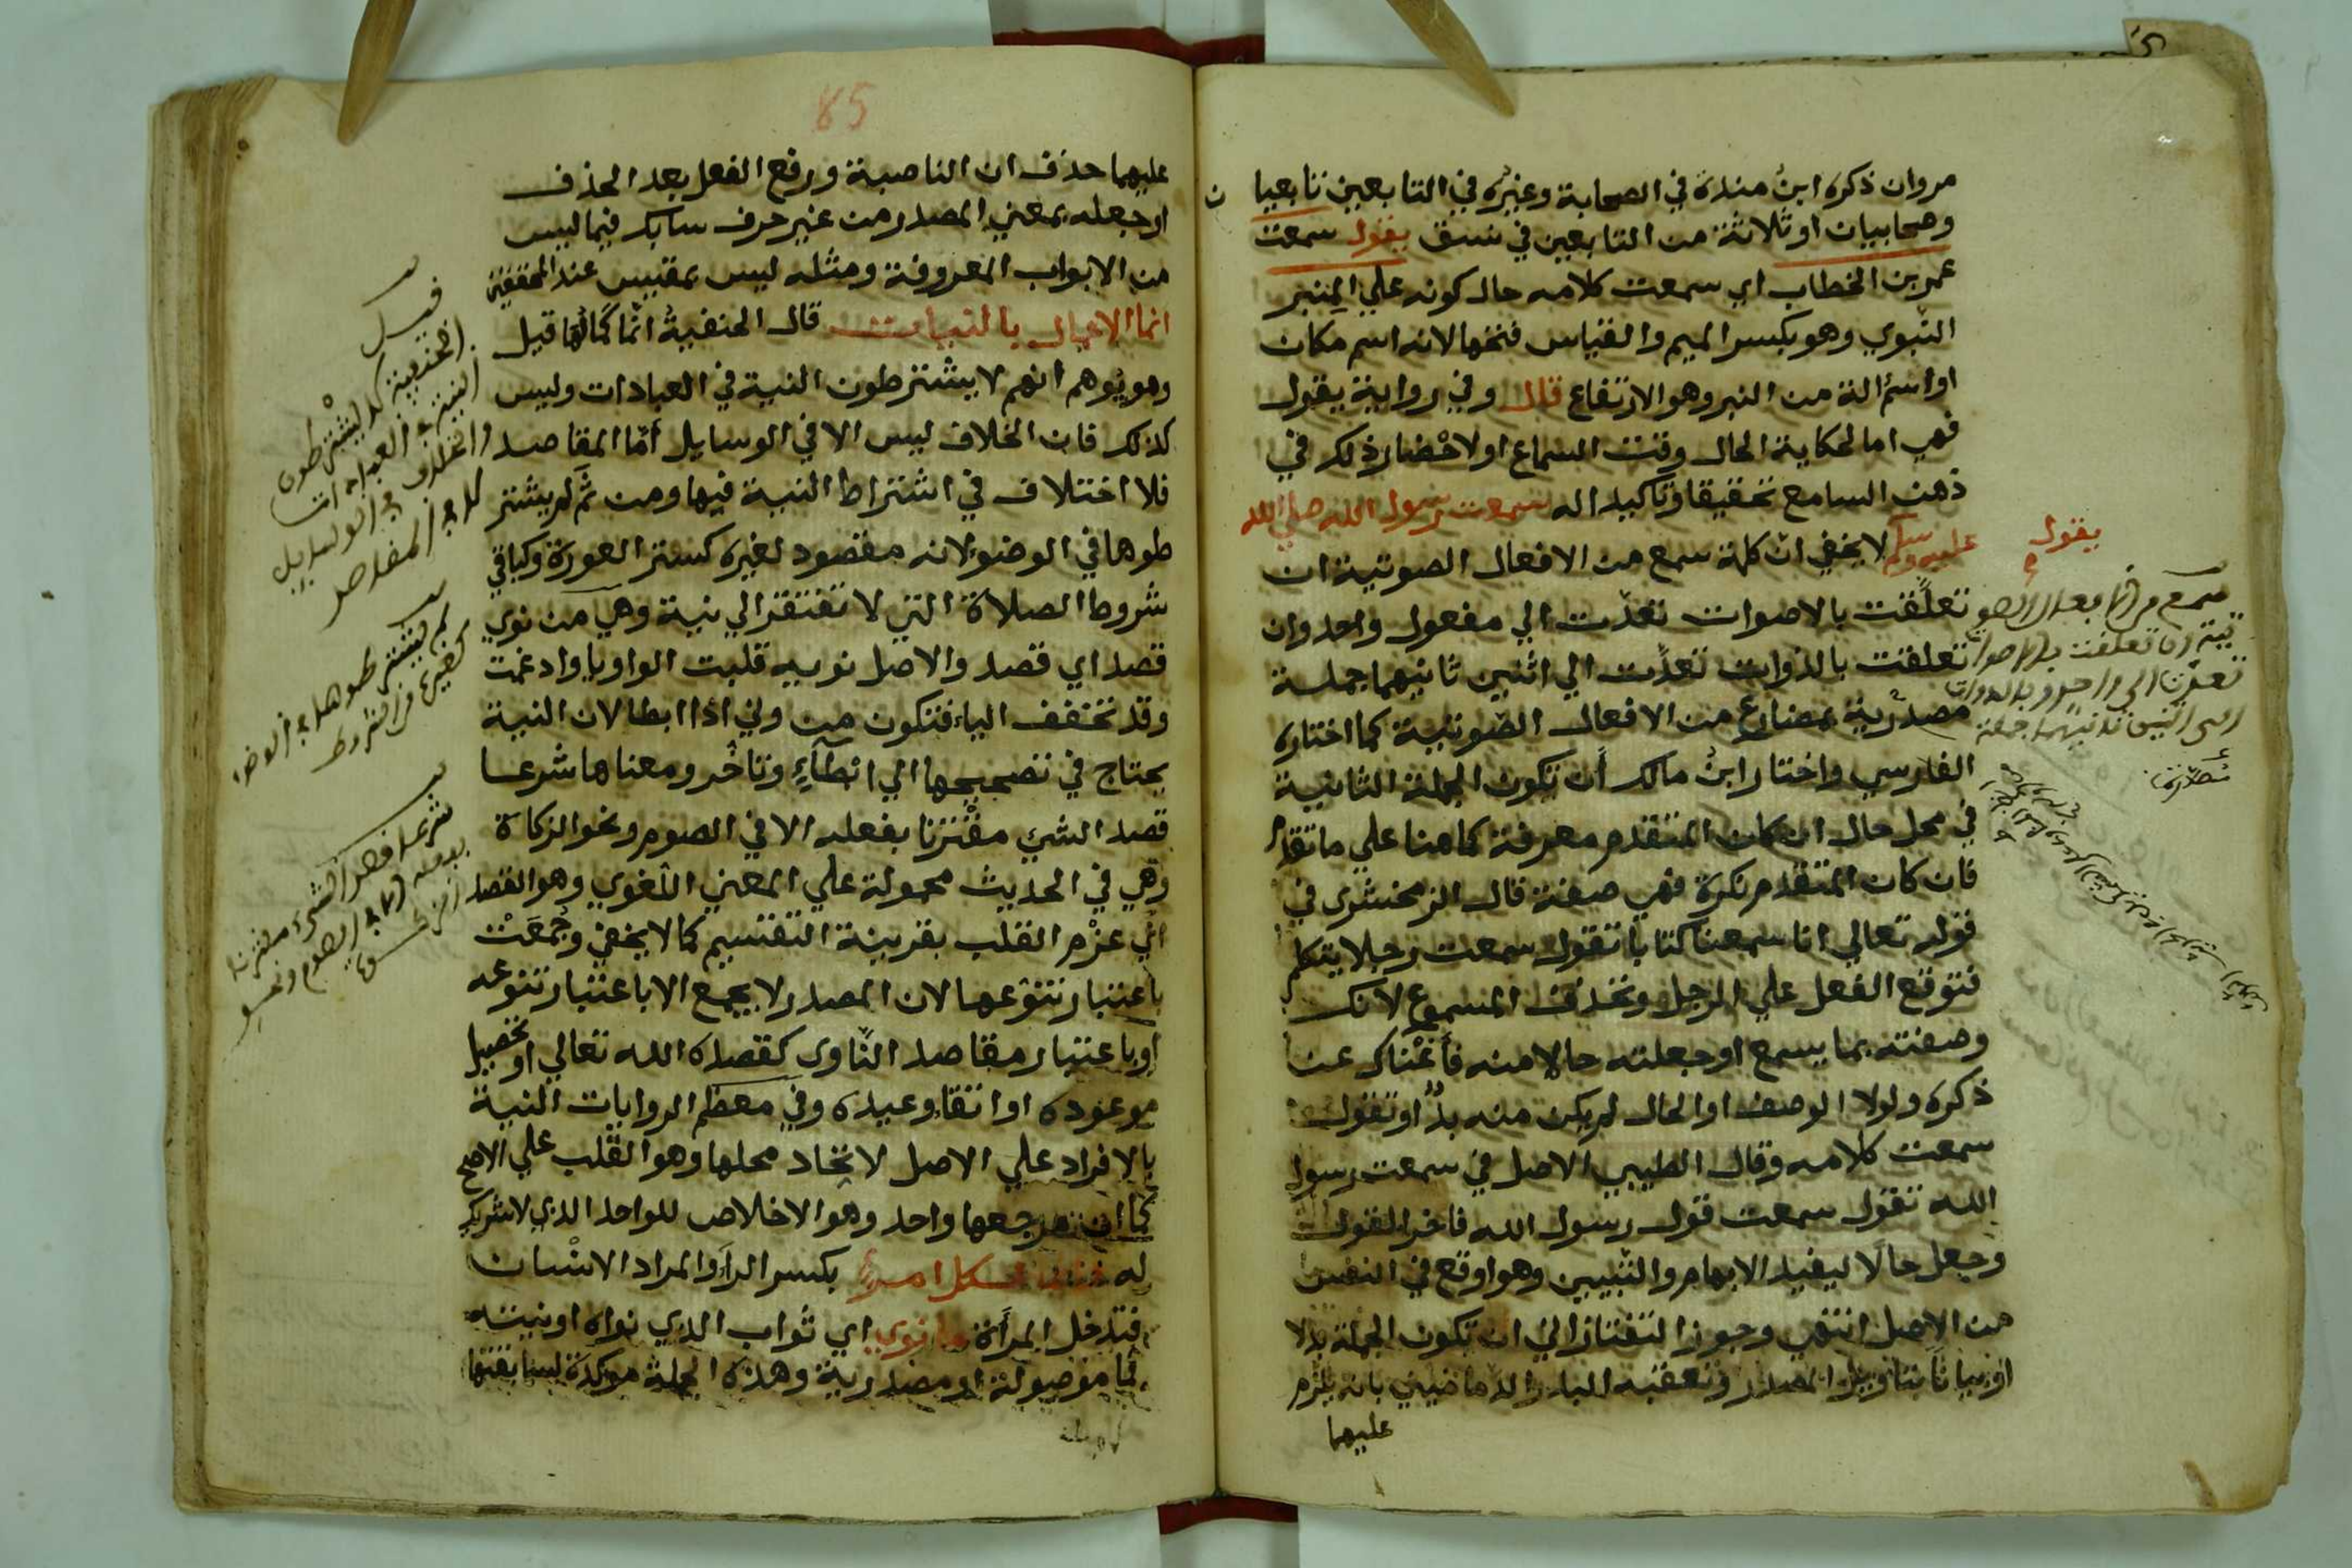 مروان ذكره ابن مندة في الصحابة وغيره في التابعين تابعيا
وصحابيان او ثلاثة من التابعين في نسق يقول سمعت
عمر بن الخطاب اي سمعت كلامه حال كونه علي المنبر
النبوي وهو بكسر الميم والقياس فتحها لانه اسم مكان
او اسم الة من النبر وهو الارتفاع قال وفي رواية يقول
فهي اما لحكاية الحال وقت السماع او لاحضار ذلك في
ذهن السامع تحقيقا وتاكيدا له سمعت رسول الله صلي الله
عليه وسلم لا يخفي ان كلمة سمع من الافعال الصوتية ان
يقول
تعلقت بالاصوات تعدت الي مفعول واحد وان
تعلقت بالذوات تعدت الي اثنين ثانيهما جملة
مصدرية بمضارع من الافعال الصوتية كما اختاره
الفارسي واختار ابن مالك أن تكون الجملة الثانية
في محل حال ان كان المتقدم معرفة كما هنا علي ما تقدم
فان كان المتقدم نكرة فهي صفة قال الزمخشري في
قوله تعالي انا سمعنا كتابا تقول سمعت رجلا يتكلم
فتوقع الفعل علي الرجل وتحذف المسموع لانك
وصفته بما يسمع او جعلته حالا منه فأغناك عن
ذكره ولولا الوصف او الحال لم يكن منه بد او تقول
سمعت كلامه وقال الطيبي الاصل في سمعت رسول
الله تقول سمعت قول رسول الله فاخر القول
وجعل حالا ليفيد الابهام والتبيين وهو اوقع في النفس
من الاصل انتهي وجوز التفتازاني ان تكون الجملة بدلا
او بيانا بتاويل المصدر وتعقبه البدر الدماميني بانه يلزم
عليهما
سمع من الافعال الصو
تية ان تعلقت بالاصوا
تعدت الي واحد وبالذوات
الي اثنين ثانيهما جملة
مصدرة
85
عليهما حذف ان الناصبة ورفع الفعل بعد الحذف
او جعله بمعني المصدر من غير حرف سابك فيما ليس
من الابواب المعروفة ومثله ليس بمقيس عند المحققين
انما الاعمال بالنيات قال الحنفية انما كمالها قيل
وهو يوهم انهم لا يشترطون النية في العبادات وليس
كذلك فان الخلاف ليس الا في الوسايل أما المقاصد
فلا اختلاف في اشتراط النية فيها ومن ثم لم يشتر
طوها في الوضوء لانه مقصود لغيره كستر العورة وكباقي
شروط الصلاة التي لا تفتقر الي نية وهي من نوي
قصد اي قصد والاصل نويه قلبت الواو يا وادغمت
وقد تخفف الياء فتكون من وني اذا ابطا لان النية
يحتاج في تصحيحها الي ابطاء وتاخر ومعناها شرعا
قصد الشيء مقترنا بفعله الا في الصوم ونحو الزكاة
وهي في الحديث محمولة علي المعني اللغوي وهو القصد
أي عزم القلب بقرينة التقسيم كما لا يخفي وجمعت
باعتبار تنوعها لان المصدر لا يجمع الا باعتبار تنوعه
او باعتبار مقاصد الناوي كقصده الله تعالي او تحصيل
موعوده او اتقا وعيده وفي معظم الروايات النية
بالافراد علي الاصل لاتحاد محلها وهو القلب علي الاصح
كما ان مرجعها واحد وهو الاخلاص للواحد الذي لا شريك
له وانما لكل امرئ بكسر الراء والمراد الانسان
فتدخل المرأة ما نوي اي ثواب الذي نواه او نيته
فما موصولة او مصدرية وهذه الجملة موكدة لسابقتها
قيل
الحنفية لا يشترطون
النية في العبادات
والخلاف في الوسايل
لا في المقاصد
لم يشترطوها في الوضوء
كغيره من الشروط
شرعا قصد الشيء مقترنا
بفعله الا في الصوم ونحو